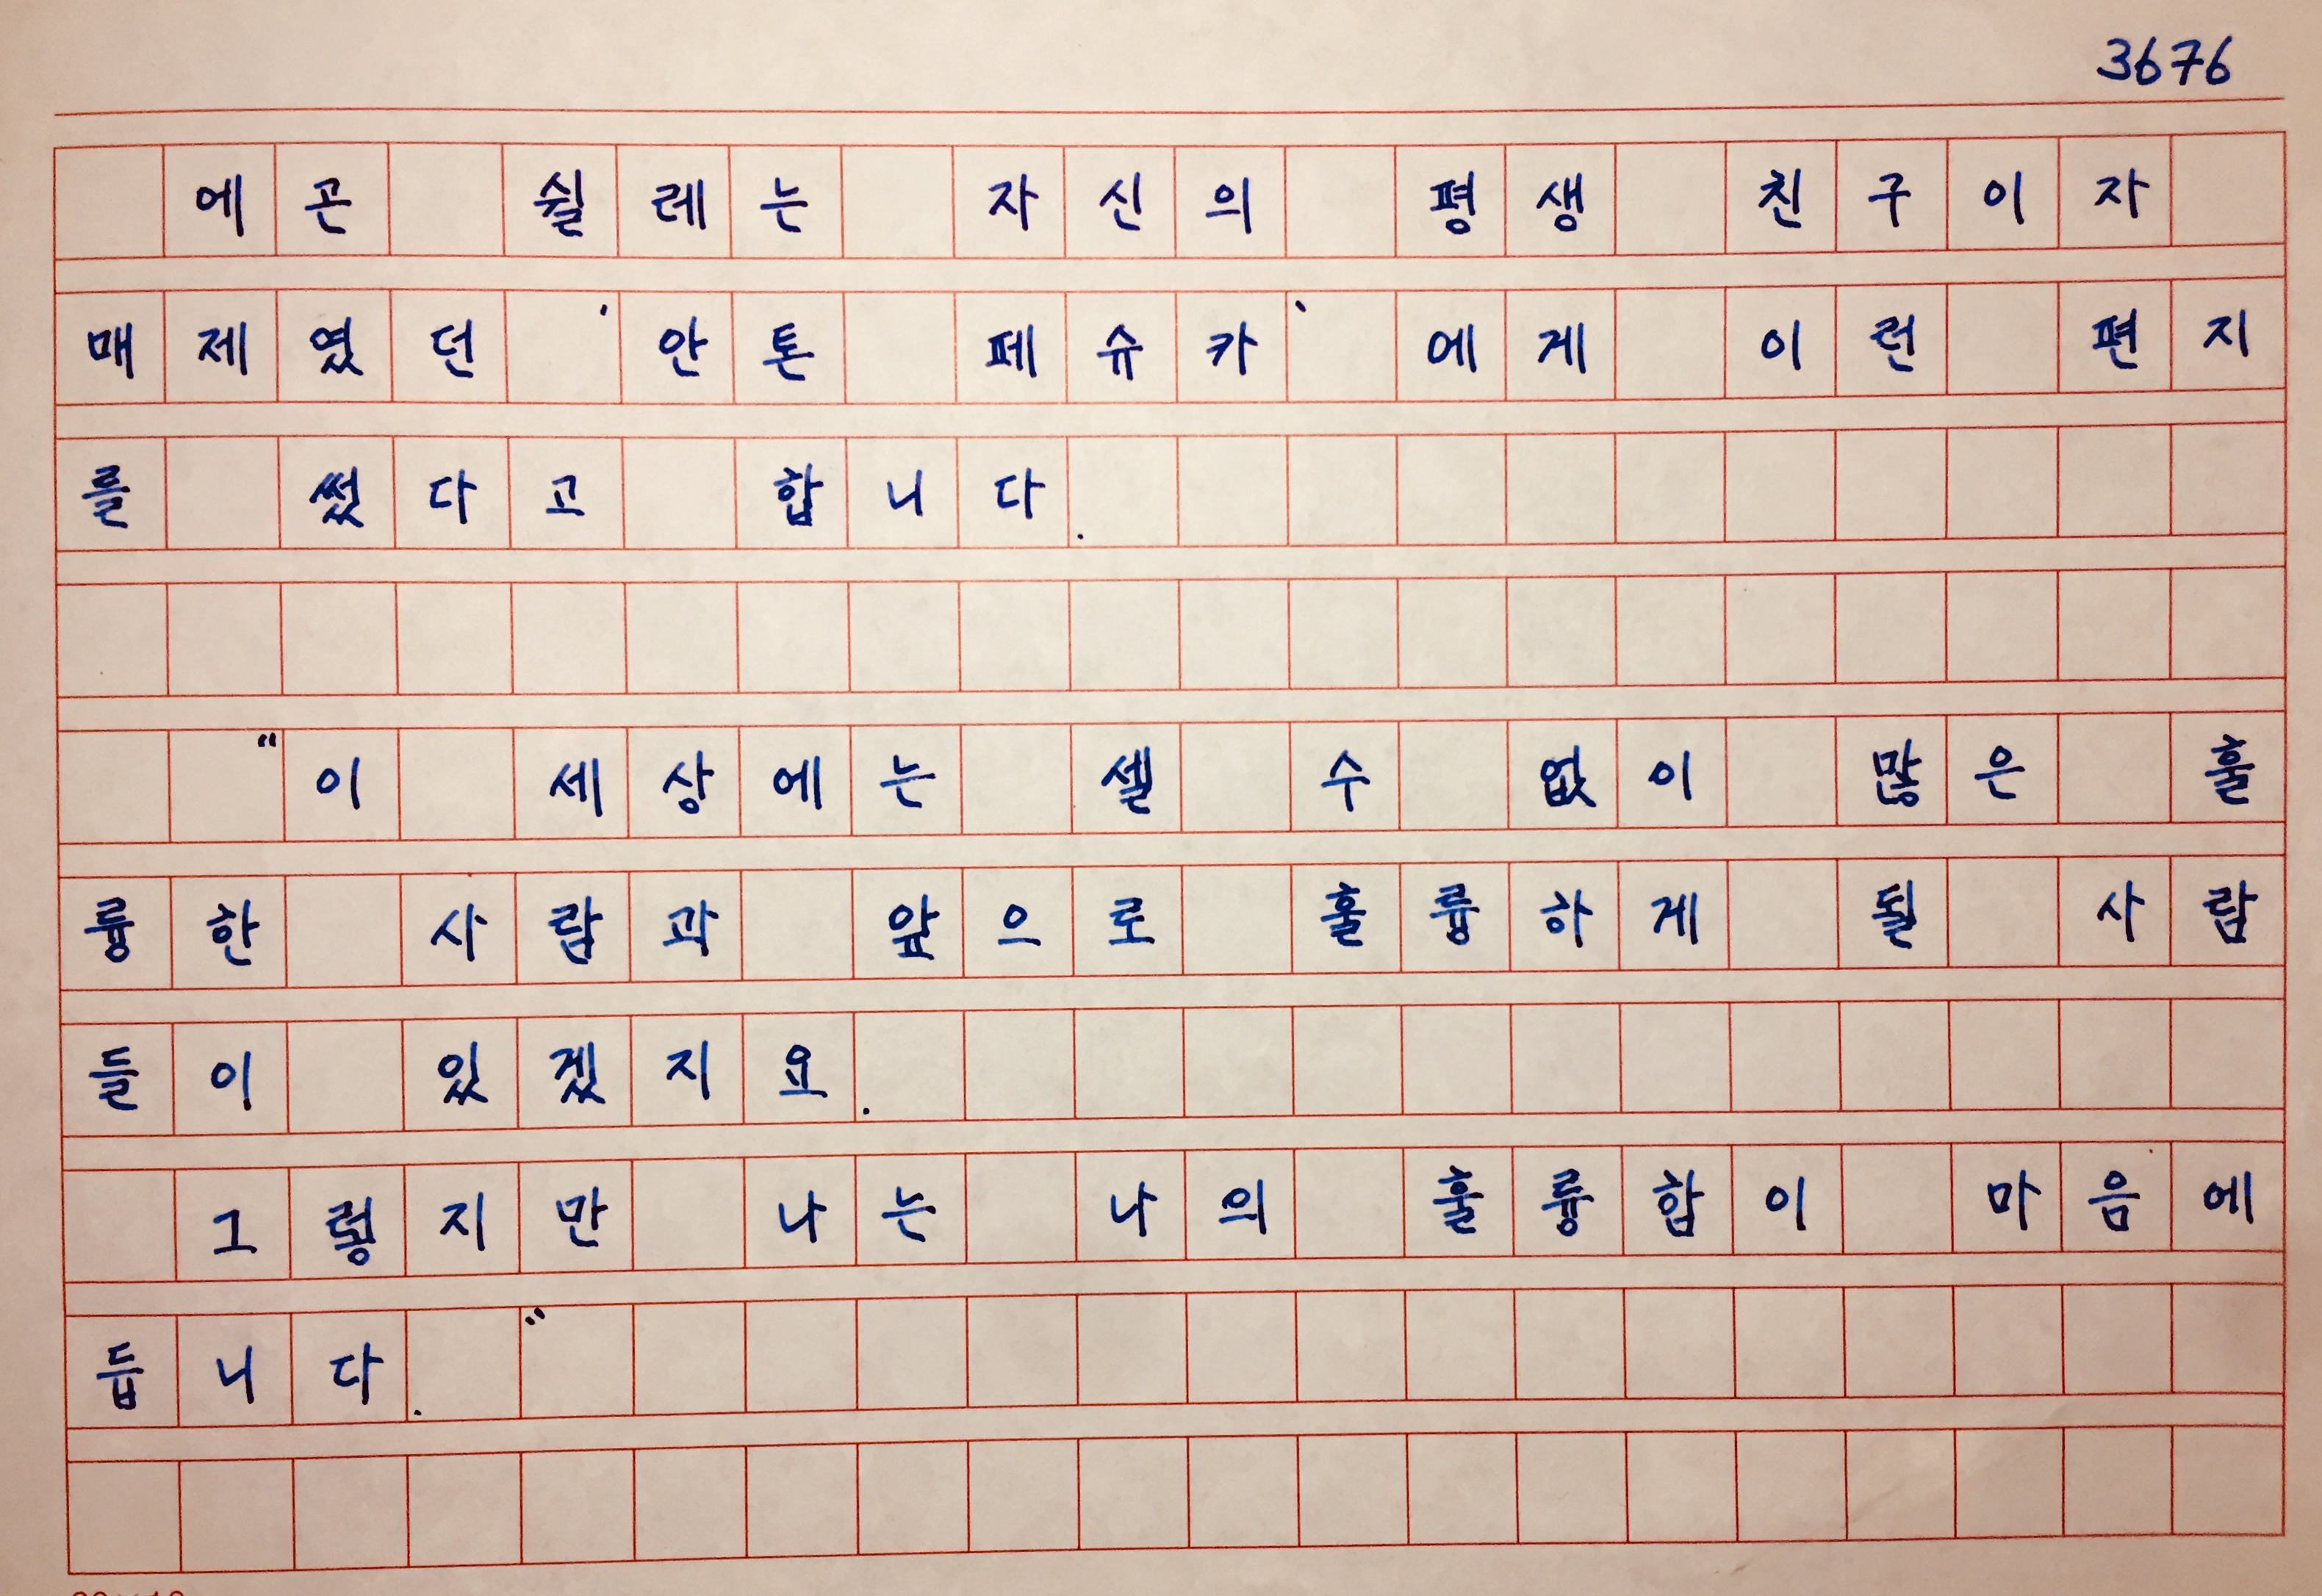 3676
에곤 쉴레는 자신의 평생 친구이자
매제였던 '안톤 페슈카' 에게 이런 편지
를 썼다고 합니다.
"이 세상에는 셀 수 없이 많은 훌
륭한 사람과 앞으로 훌륭하게 될 사람
들이 있겠지요.
그렇지만 나는 나의 훌륭함이 마음에
듭니다."